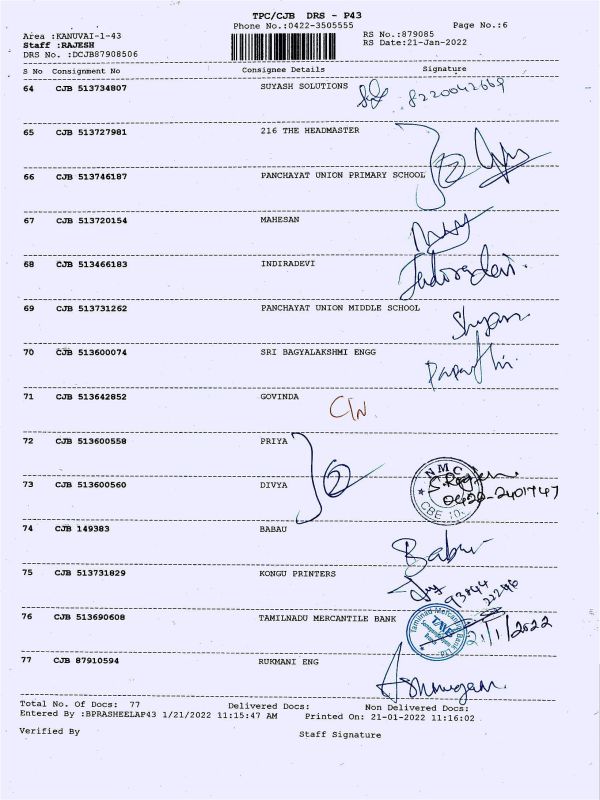 TPC/CJB DRS - P43
Phone No.:0422-3505555 Page No.:6
Area :KANUVAI-1-43 RS No.:879085
Staff :RAJESH RS Date:21-Jan-2022
DRS No. :DCJB87908506
S No Consignment No Consignee Details Signature
64 CJB 513734807 SUYASH SOLUTIONS 8220042669
65 CJB 513727981 216 THE HEADMASTER
66 CJB 513746187 PANCHAYAT UNION PRIMARY SCHOOL
67 CJB 513720154 MAHESAN
68 CJB 513466183 INDIRADEVI Indiradevi.
69 CJB 513731262 PANCHAYAT UNION MIDDLE SCHOOL Shyam
70 CJB 513600074 SRI BAGYALAKSHMI ENGG
71 CJB 513642852 GOVINDA
72 CJB 513600558 PRIYA
NMC
73 CJB 513600560 DIVYA 0422-2401747
CBE
74 CJB 149383 BABAU Babu
75 CJB 513731829 KONGU PRINTERS 93844
22286
76 CJB 513690608 TAMILNADU MERCANTILE BANK Tamilnad Mercantile Bank Ltd 21/1/2022
77 CJB 87910594 RUKMANI ENG
Total No. Of Docs: 77 Delivered Docs: Non Delivered Docs:
Entered By :BPRASHEELAP43 1/21/2022 11:15:47 AM Printed On: 21-01-2022 11:16:02
Verified By Staff Signature